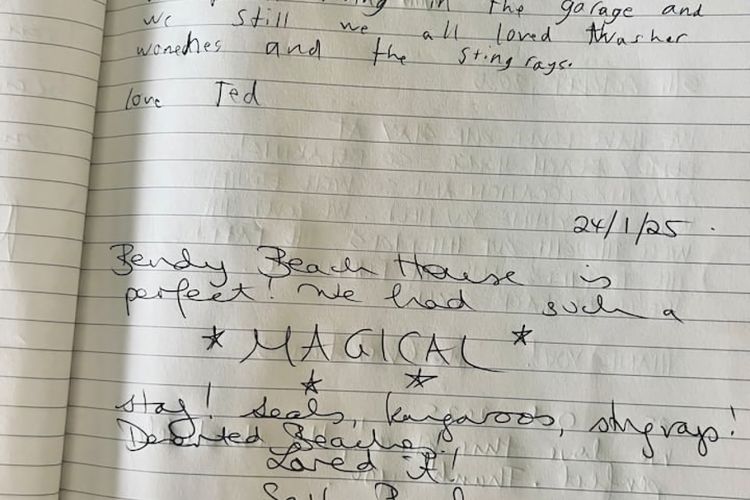 in the garage and
we still we all loved thrasher
woneches and the sting rays.
love Ted
24/1/25.
Bendy Beach House is
perfect! We had such a
MAGICAL
stay! Seals, kangaroos, stingrays!
Deserted Beaches
Loved it!